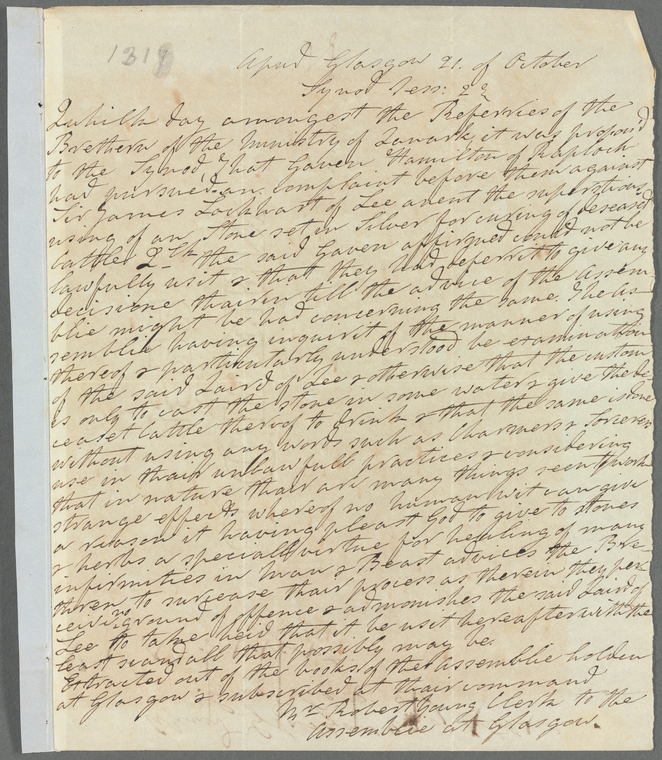 1318
Apud Glasgow 21. of October
Synod Sess: 2d
Quhilk day amongest the Referries of the
Brethern of the Ministry of Lanark it was propond
to the Synod, that Gaven Hamilton of Raploch
had pursued an complaint before them against
Sir James Lockhart of Lee anent the superstious
using of an Stne set in Silver for curing of deseased
Cattle qlk the said Gaven affirmed could not be
lawfully usit & that they had deferrit to give any
decisione thairin till the advice of the assem
blie might be had concerning the same. The As-
semblie having inquirit of the manner of using
thereof & particularly understood be examination
of the said Laird of Lee & otherwise that the custom
is only to cast the stone in some water & give the de
ceaset Cattle thereof to drink & that the same is done
without using any words such as Charmers & Sorcerers
use in thair unlawfull practices & considering
that in nature thair are many things seen to work
strange effects whereof no human wit can give
a reason it having pleast God to give to stones
& herbs a speciall virtue for healing of many
infirmities in man & Beast advices the Bre-
thren to surcease thair process as therein they per
ceive no ground of offence & admonishes the said Laird of
Lee to take heid that it be usit hereafter with the
least scandall that possibly may be.
Extracted out of the books of the Assemblie holden
at Glasgow & subscribed at thair command
Mr Robert Young Clerk to the
Assemblie at Glasgow.